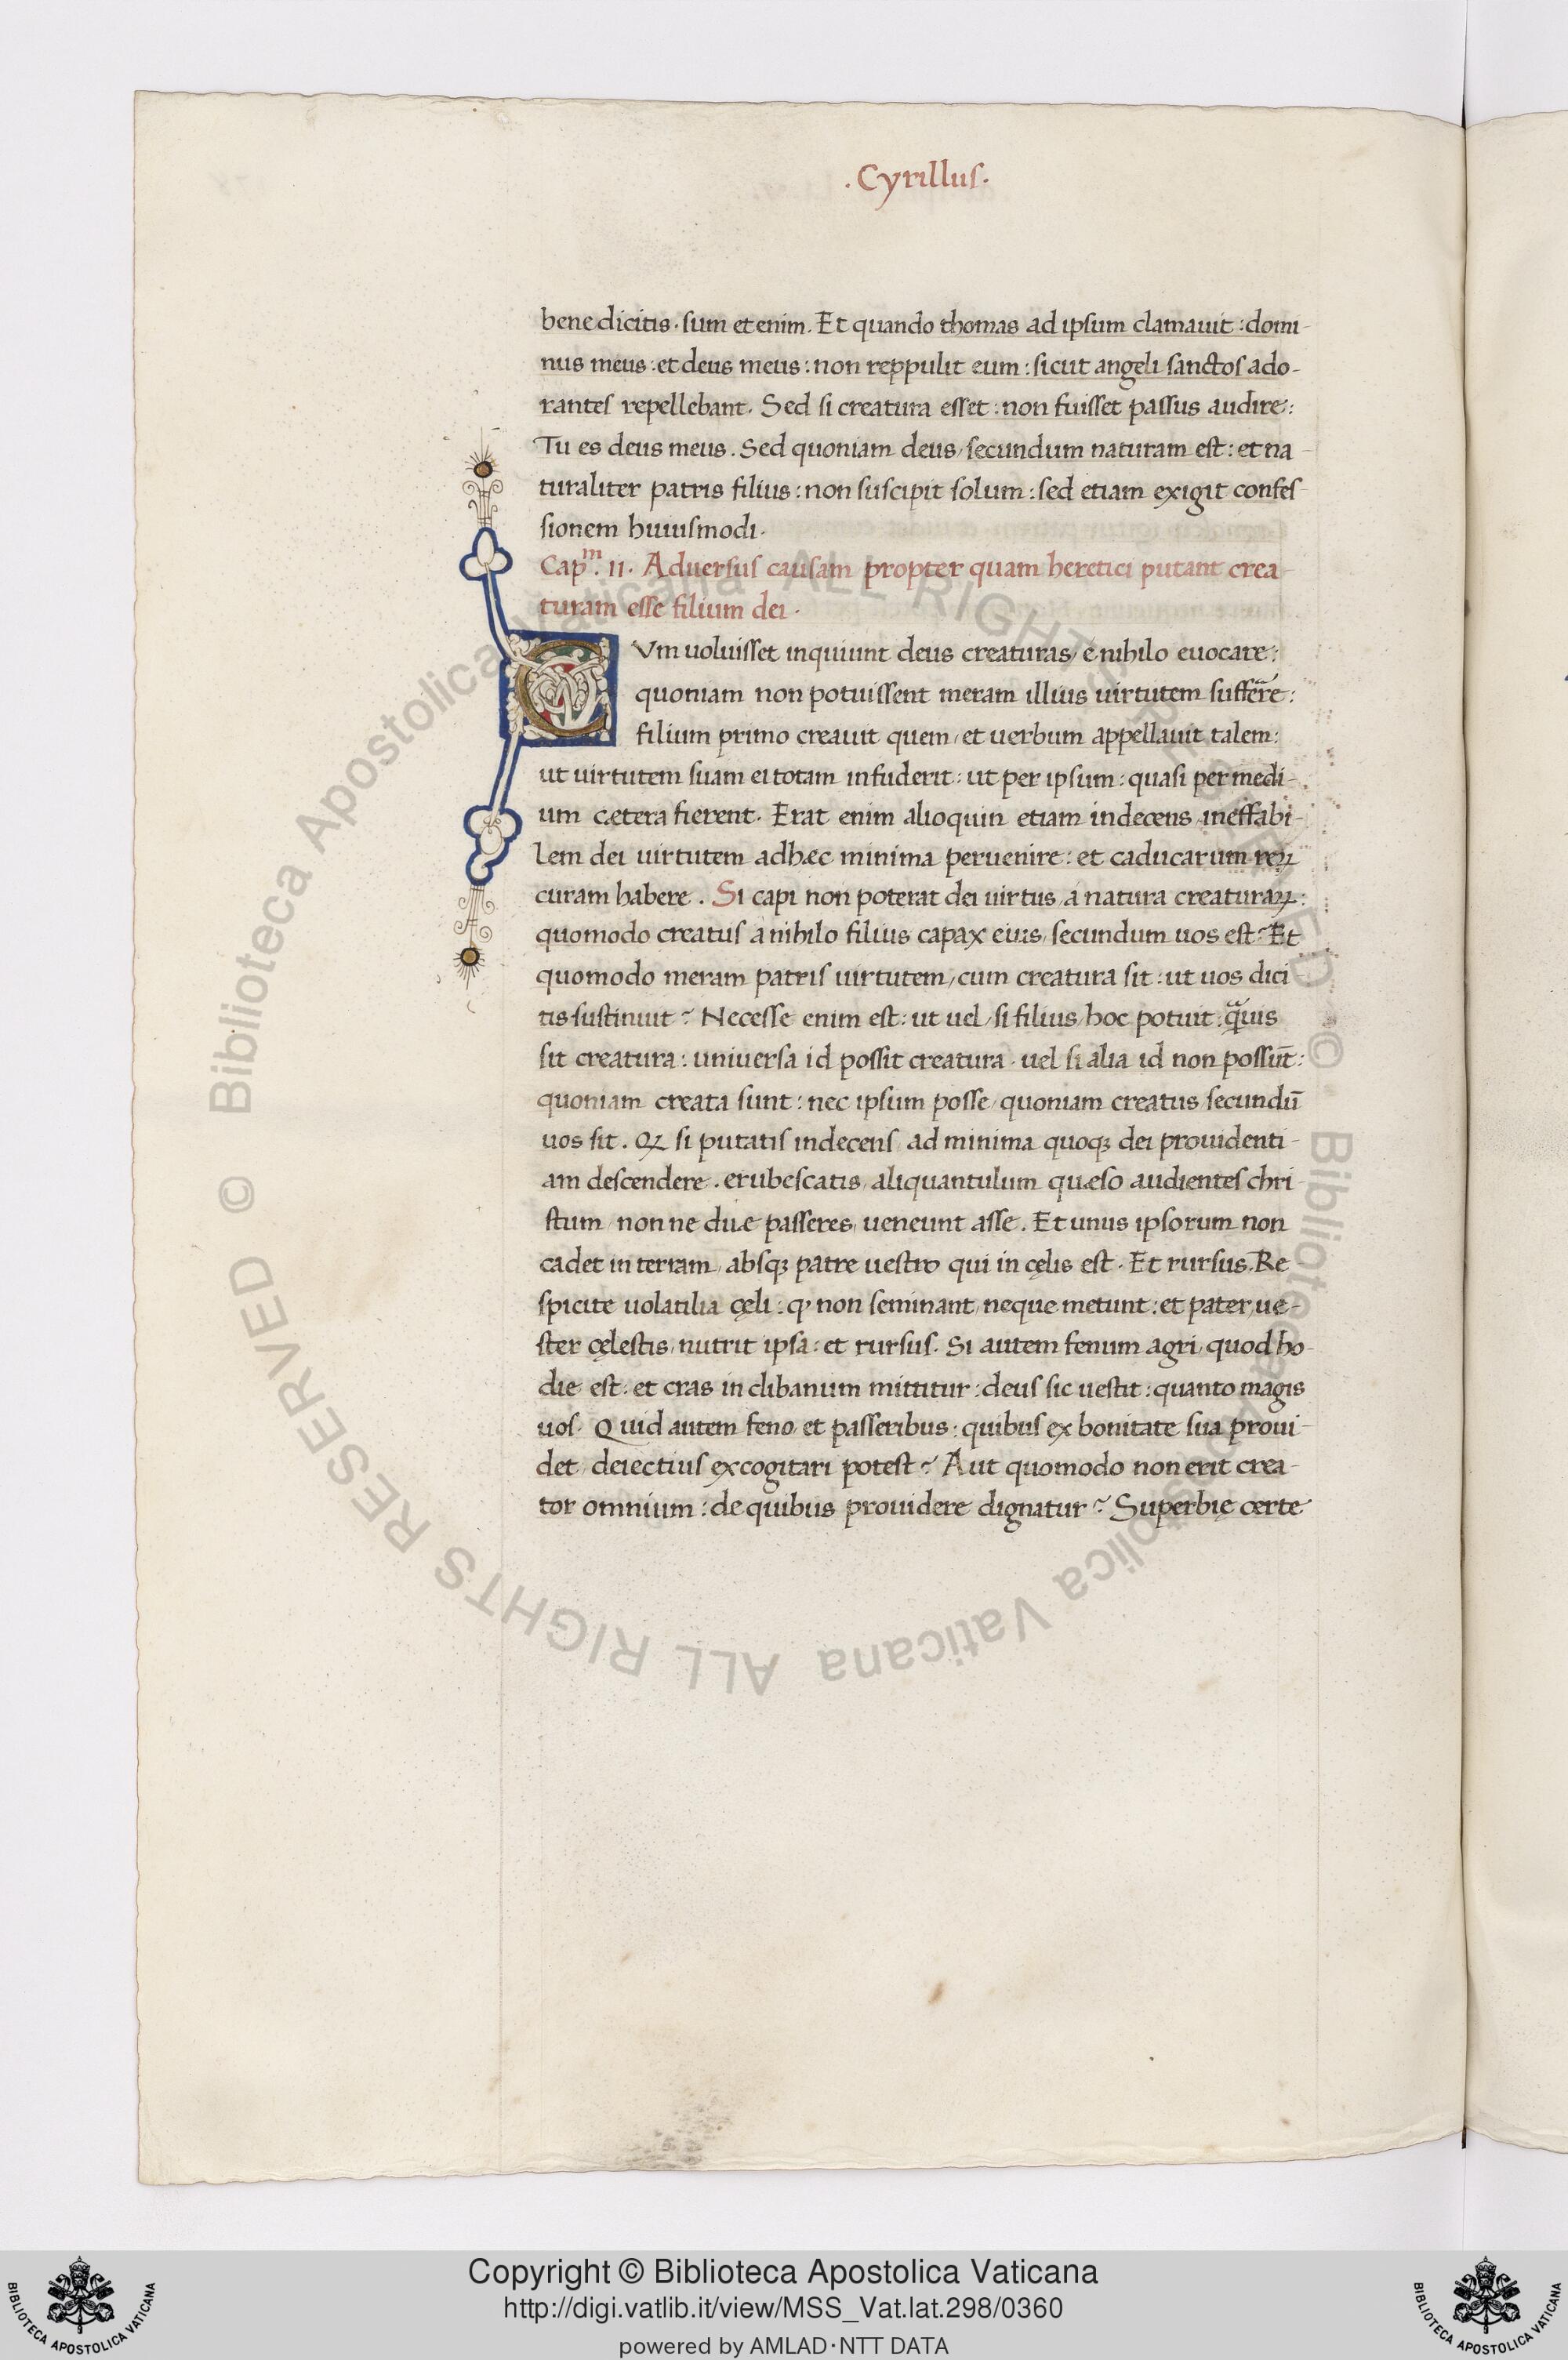 .Cyrillus.
bene dicitis. sum et enim. Et quando thomas ad ipsum clamauit: domi-
nus meus: et deus meus: non reppulit eum: sicut angeli sanctos ado-
rantes repellebant. Sed si creatura esset: non fuisset passus audire:
Tu es deus meus. Sed quoniam deus, secundum naturam est: et na-
turaliter patris filius: non suscipit solum: sed etiam exigit confes-
sionem huiusmodi.
Capᵐ. II. Aduersus causam propter quam heretici putant crea-
turam esse filium dei.
CVm uoluisset inquiunt deus creaturas, e nihilo euocare:
quoniam non potuissent meram illius uirtutem sufferre:
filium primo creauit quem, et uerbum appellauit talem:
ut uirtutem suam ei totam infuderit: ut per ipsum: quasi per medi-
um cætera fierent. Erat enim alioquin etiam indecens, ineffabi-
lem dei uirtutem ad hæc minima peruenire: et caducarum reꝝ
curam habere. Si capi non poterat dei uirtus, a natura creaturaꝝ:
quomodo creatus a nihilo filius capax eius, secundum uos est? Et
quomodo meram patris uirtutem, cum creatura sit: ut uos dici
tis sustinuit? Necesse enim est: ut uel, si filius, hoc potuit: q̃uis
sit creatura: uniuersa id possit creatura. uel si alia id non possūt:
quoniam creata sunt: nec ipsum posse, quoniam creatus, secundū
uos sit. Qꝫ si putatis indecens, ad minima quoqꝫ dei prouidenti-
am descendere. erubescatis, aliquantulum quæso audientes chri-
stum, non ne duæ passeres, ueneunt asse. Et unus ipsorum non
cadet in terram, absqꝫ patre uestro qui in cęlis est. Et rursus. Re
spicite uolatilia cęli: ꝙ non seminant, neque metunt: et pater, ue-
ster cęlestis, nutrit ipsa: et rursus. Si autem fenum agri, quod ho-
die est: et cras in clibanum mittitur: deus sic uestit: quanto magis
uos. Quid autem feno, et passeribus: quibus ex bonitate sua proui-
det, deiectius excogitari potest? Aut quomodo non erit crea-
tor omnium: de quibus prouidere dignatur? Superbię certe
© Biblioteca Apostolica Vaticana ALL RIGHTS RESERVED
© Biblioteca Apostolica Vaticana ALL RIGHTS RESERVED
Copyright © Biblioteca Apostolica Vaticana
http://digi.vatlib.it/view/MSS_Vat.lat.298/0360
powered by AMLAD·NTT DATA
BIBLIOTECA APOSTOLICA VATICANA
BIBLIOTECA APOSTOLICA VATICANA